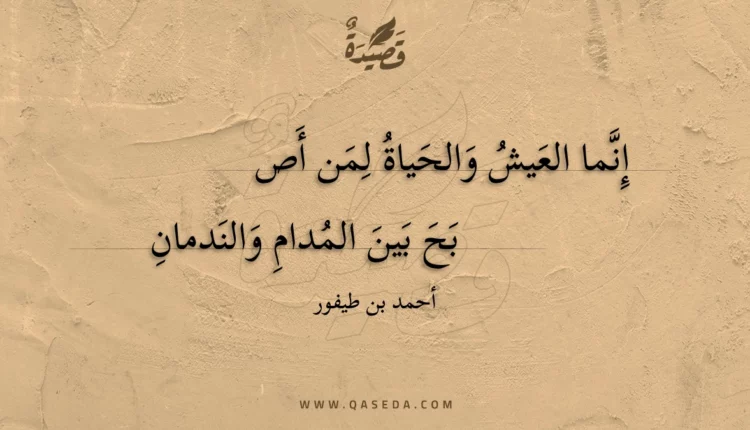 قَصِيدَةٌ
إِنَّما العَيشُ وَالحَياةُ لِمَن أَص
بَحَ بَينَ المُدامِ وَالنَدمانِ
أحمد بن طيفور
WWW.QASEDA.COM